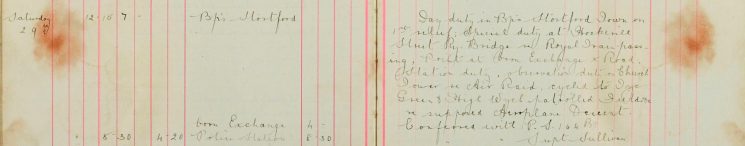 Saturday 12-15 7 - Bp's Stortford
29th
Day duty in Bp's Stortford Town on
1st relief. Special duty at Hockerill
Street Ry. Bridge re Royal Train pass-
ing, Point at Corn Exchange & Road.
Station duty, observation duty on Church
Tower re Air Raid, cycled to
Green & High Wych patrolled
re supposed Aeroplane Descent.
Corn Exchange 4 -
Conferred with P.S. 164 B
" 8-30 4-20 Police Station 8-30
" Supt Sullivan